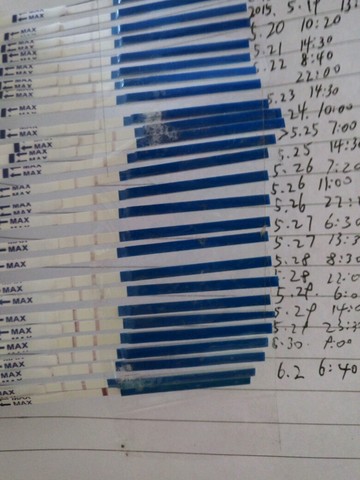 2015. 5.19 13:
MAX 5.20 10:20
MAX 5.21 14:30
MAX 5.22 8:40
MAX 22:00
MAX 5.23 14:30
MAX 24. 10:00
MAX >5.25 7:00
MAX 5.25 14:30
MAX 5.26 7:20
MAX 5.26 11:00
MAX 5.26 22:
MAX 5.27 6:30
MAX 5.27 13:3
MAX 5.28 8:30
MAX 5.28 22:0
MAX 5.29. 6:0
MAX 5.29 14:0
MAX 5.29
MAX 5.30
MAX 6.2 6:40
MAX